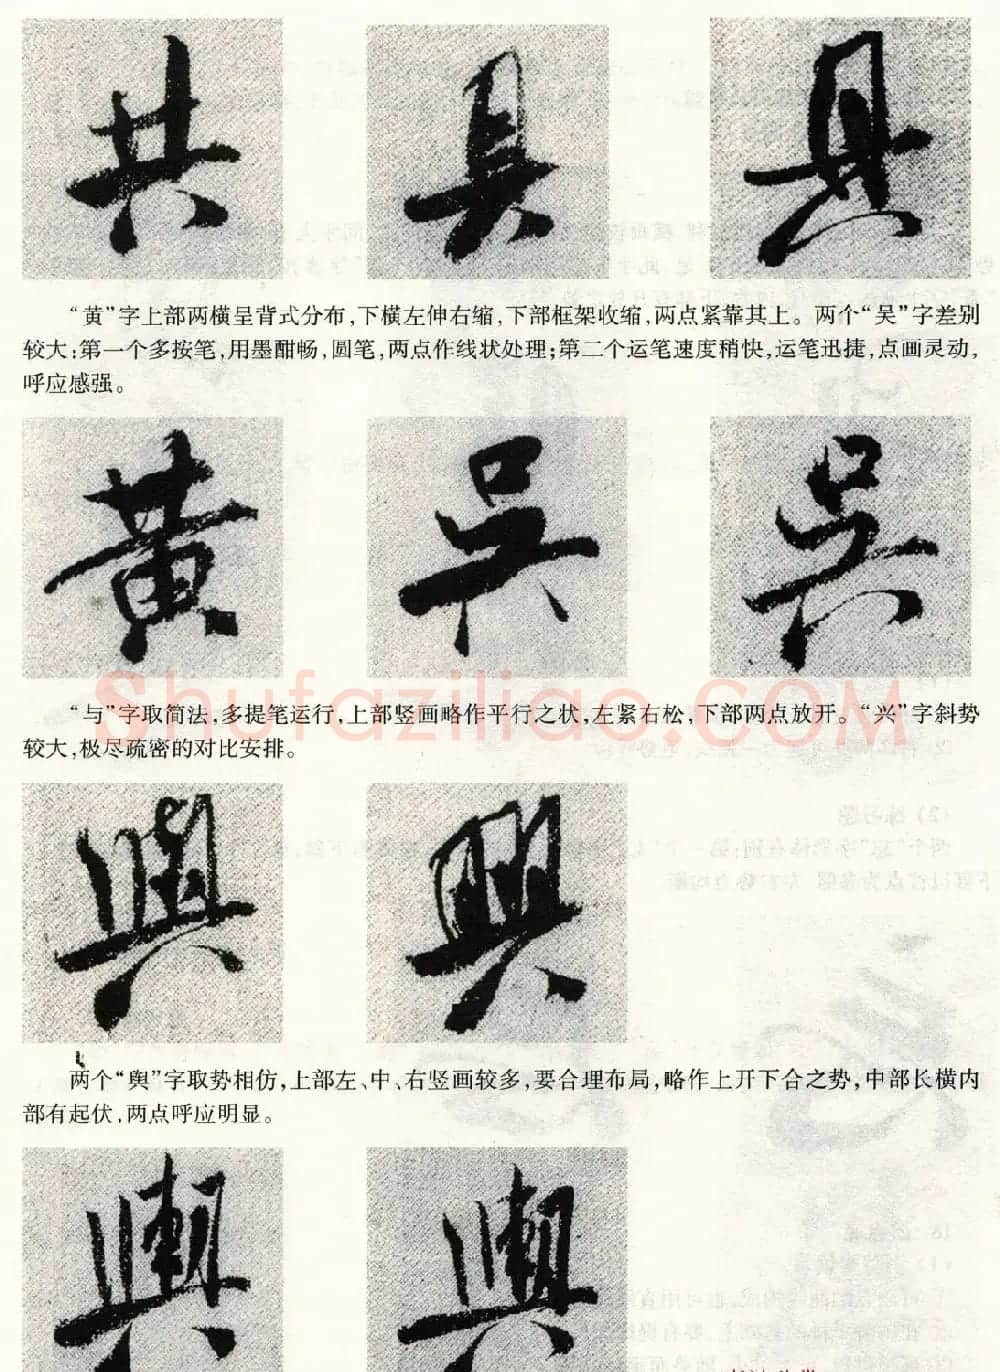 共 具 具
“黄”字上部两横呈背式分布，下横左伸右缩，下部框架收缩，两点紧靠其上。两个“吴”字差别
较大：第一个多按笔，用墨酣畅，圆笔，两点作线状处理；第二个运笔速度稍快，运笔迅捷，点画灵动，
呼应感强。
黄 吴 吴
Shufaziliao.COM
“与”字取简法，多提笔运行，上部竖画略作平行之状，左紧右松，下部两点放开。“兴”字斜势
较大，极尽疏密的对比安排。
與 興
两个“舆”字取势相仿，上部左、中、右竖画较多，要合理布局，略作上开下合之势，中部长横内
部有起伏，两点呼应明显。
輿 輿